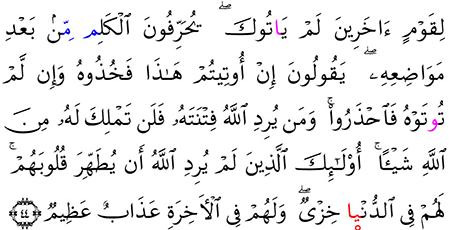 لِقَوْمٍ ءَاخَرِينَ لَمْ يَاتُوكَ ۖ يُحَرِّفُونَ ٱلْكَلِم مِّنۢ بَعْدِ
مَوَاضِعِهِۦ ۖ يَقُولُونَ إِنْ أُوتِيتُمْ هَٰذَا فَخُذُوهُ وَإِن لَّمْ
تُوتَوْهُ فَٱحْذَرُوا۟ ۚ وَمَن يُرِدِ ٱللَّهُ فِتْنَتَهُۥ فَلَن تَمْلِكَ لَهُۥ مِنَ
ٱللَّهِ شَيْـًٔا ۚ أُو۟لَٰٓئِكَ ٱلَّذِينَ لَمْ يُرِدِ ٱللَّهُ أَن يُطَهِّرَ قُلُوبَهُمْ ۚ
لَهُمْ فِى ٱلدُّنْيِا خِزْىٌ ۖ وَلَهُمْ فِى ٱلْأَخِرَةِ عَذَابٌ عَظِيمٌ ٤٤